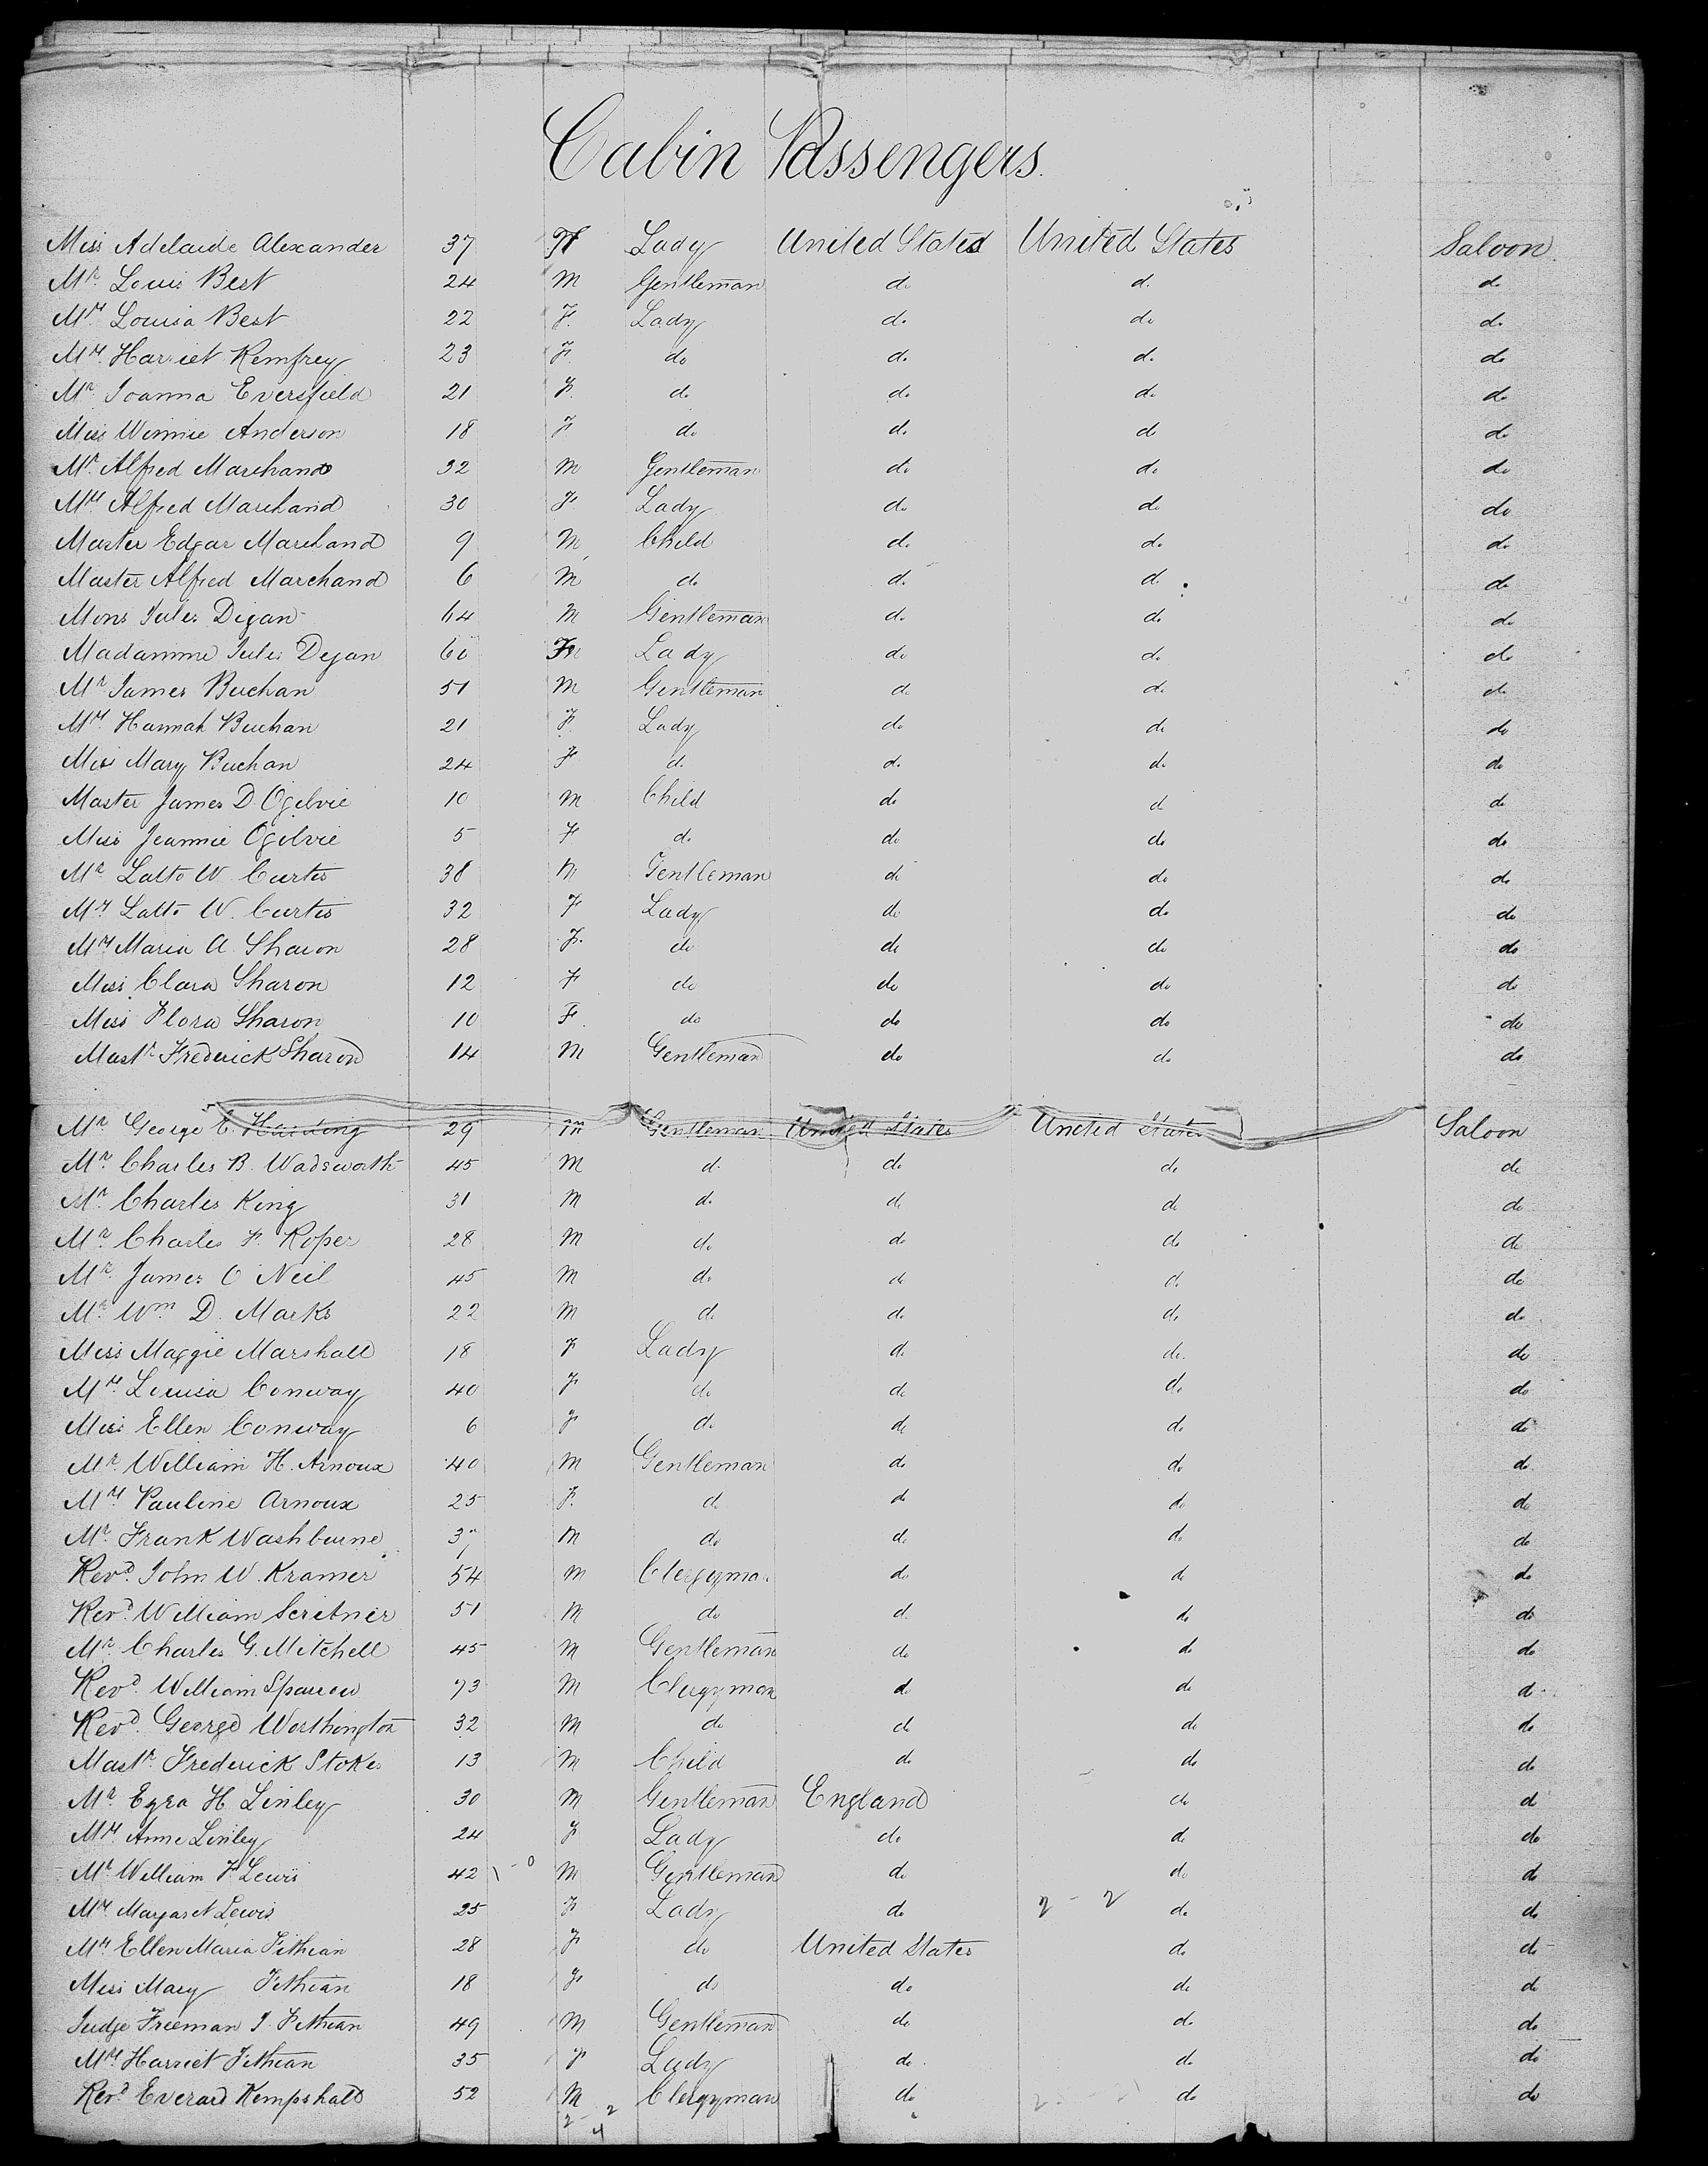 Cabin Passengers.
Miss Adelaide Alexander 37 F Lady United States United States Saloon
Mr. Louis Best 24 M Gentleman do do do
Mrs. Louisa Best 22 F. Lady do do do
Mrs. Harriet Remfrey 23 F do do do do
Mr. Joanna Eversfield 21 F. do do do do
Miss Winnie Anderson 18 F do do do do
Mr. Alfred Marchand 32 M Gentleman do do do
Mrs. Alfred Marchand 30 F Lady do do do
Master Edgar Marchand 9 M Child do do do
Master Alfred Marchand 6 M do do do do
Mons Jules Dejan 64 M Gentleman do do do
Madamme Jules Dejan 60 F Lady do do do
Mr. James Buchan 51 M Gentleman do do do
Mrs. Hannah Buchan 21 F Lady do do do
Miss Mary Buchan 24 F do do do do
Master James D. Ogilvie 10 M Child do do do
Miss Jeannie Ogilvie 5 F do do do do
Mr. Latto W. Curtis 38 M Gentleman do do do
Mrs Latto W. Curtis 32 F Lady do do do
Mrs Maria A. Sharon 28 F. do do do do
Miss Clara Sharon 12 F do do do do
Miss Flora Sharon 10 F do do do do
Mastr Frederick Sharon 14 M Gentleman do do do
Mr. George C. Harding 29 M Gentleman United States United States Saloon
Mr. Charles B. Wadsworth 45 M do do do do
Mr. Charles King 31 M do do do do
Mr. Charles F. Roper 28 M do do do do
Mr. James O Neil 45 M do do do do
Mr. Wm. D. Marks 22 M do do do do
Miss Maggie Marshall 18 F Lady do do do
Mrs. Louisa Conway 40 F do do do do
Miss Ellen Conway 6 F do do do do
Mr. William H. Arnoux 40 M Gentleman do do do
Mrs. Pauline Arnoux 25 F. do do do do
Mr. Frank Washburne M do do do do
Revd. John W. Kramer 54 M Clergyma do do do
Revd. William Scribner 51 M do do do do
Mr. Charles G. Mitchell 45 M Gentleman do do do
Revd. William Sparrow 73 M Clergyman do do do
Revd. George Worthington 32 M do do do do
Mastr. Frederick Stokes 13 M Child do do do
Mr. Ezra H Linley 30 M Gentleman England do do
Mrs. Anne Linley 24 F Lady do do do
Mr. William F. Lewis 42 M Gentleman do do do
Mrs. Margaret Lewis 25 F Lady do 2 - 2 do do
Mrs. Ellen Maria Fithian 28 F do United States do do
Miss Mary Fithian 18 F do do do do
Judge Freeman J. Fithian 49 M Gentleman do do do
Mrs. Harriet Fithian 35 F Lady do do do
Revd. Everard Kempshall 52 M Clergyman do do do
2 - 2
4